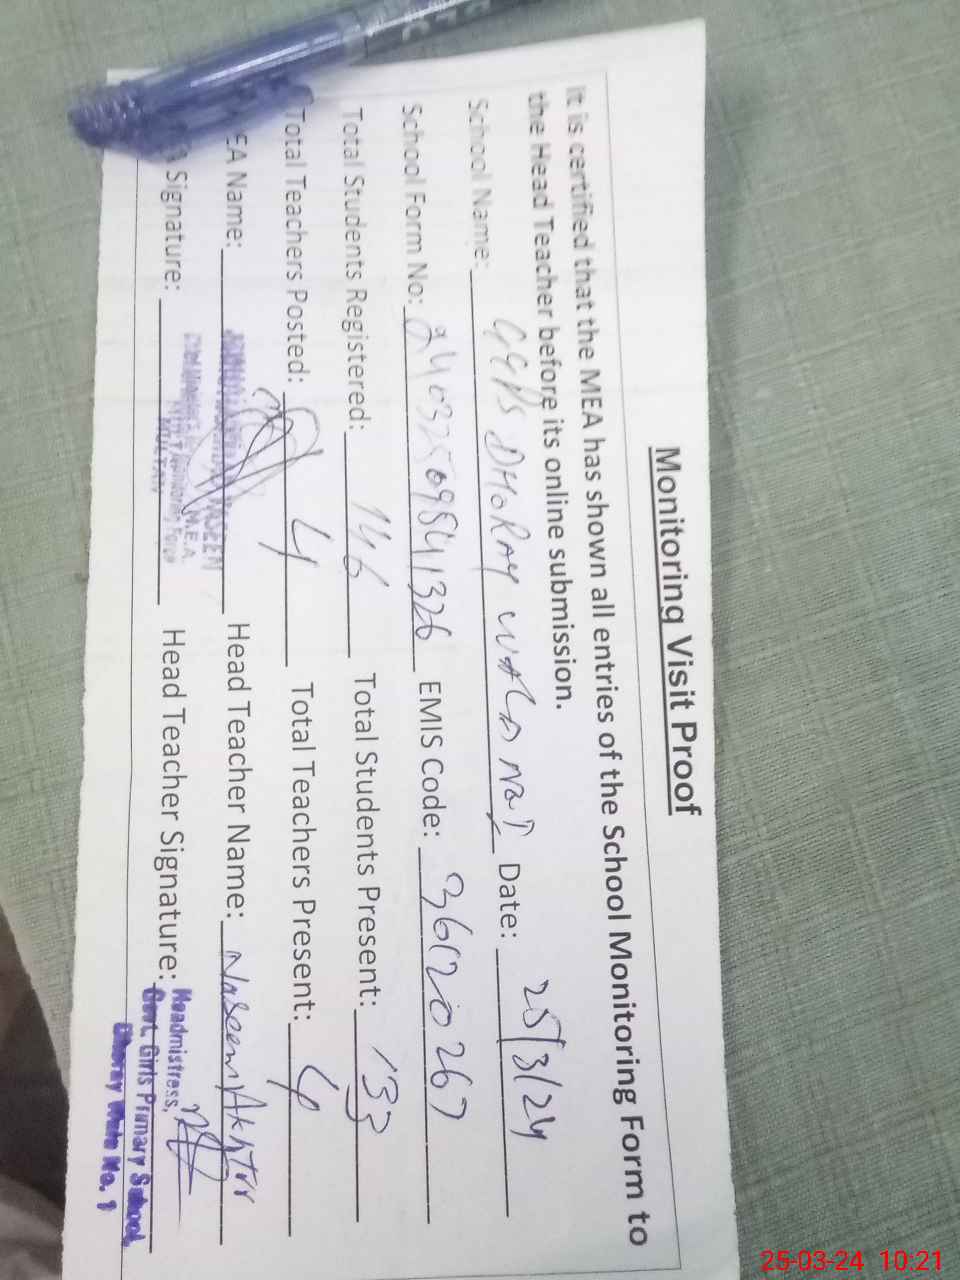 Monitoring Visit Proof
It is certified that the MEA has shown all entries of the School Monitoring Form to
the Head Teacher before its online submission.
School Name: GGPS DHORAY WALA No.1 Date: 25/3/24
School Form No: 240325098541326 EMIS Code: 36120267
Total Students Registered: 146 Total Students Present: 133
Total Teachers Posted: 4 Total Teachers Present: 4
EA Name: Head Teacher Name: Naseem Akhtar
Signature: Head Teacher Signature: Headmistress,
Govt. Girls Primary School,
Dhoray Wala No. 1
25-03-24 10:21